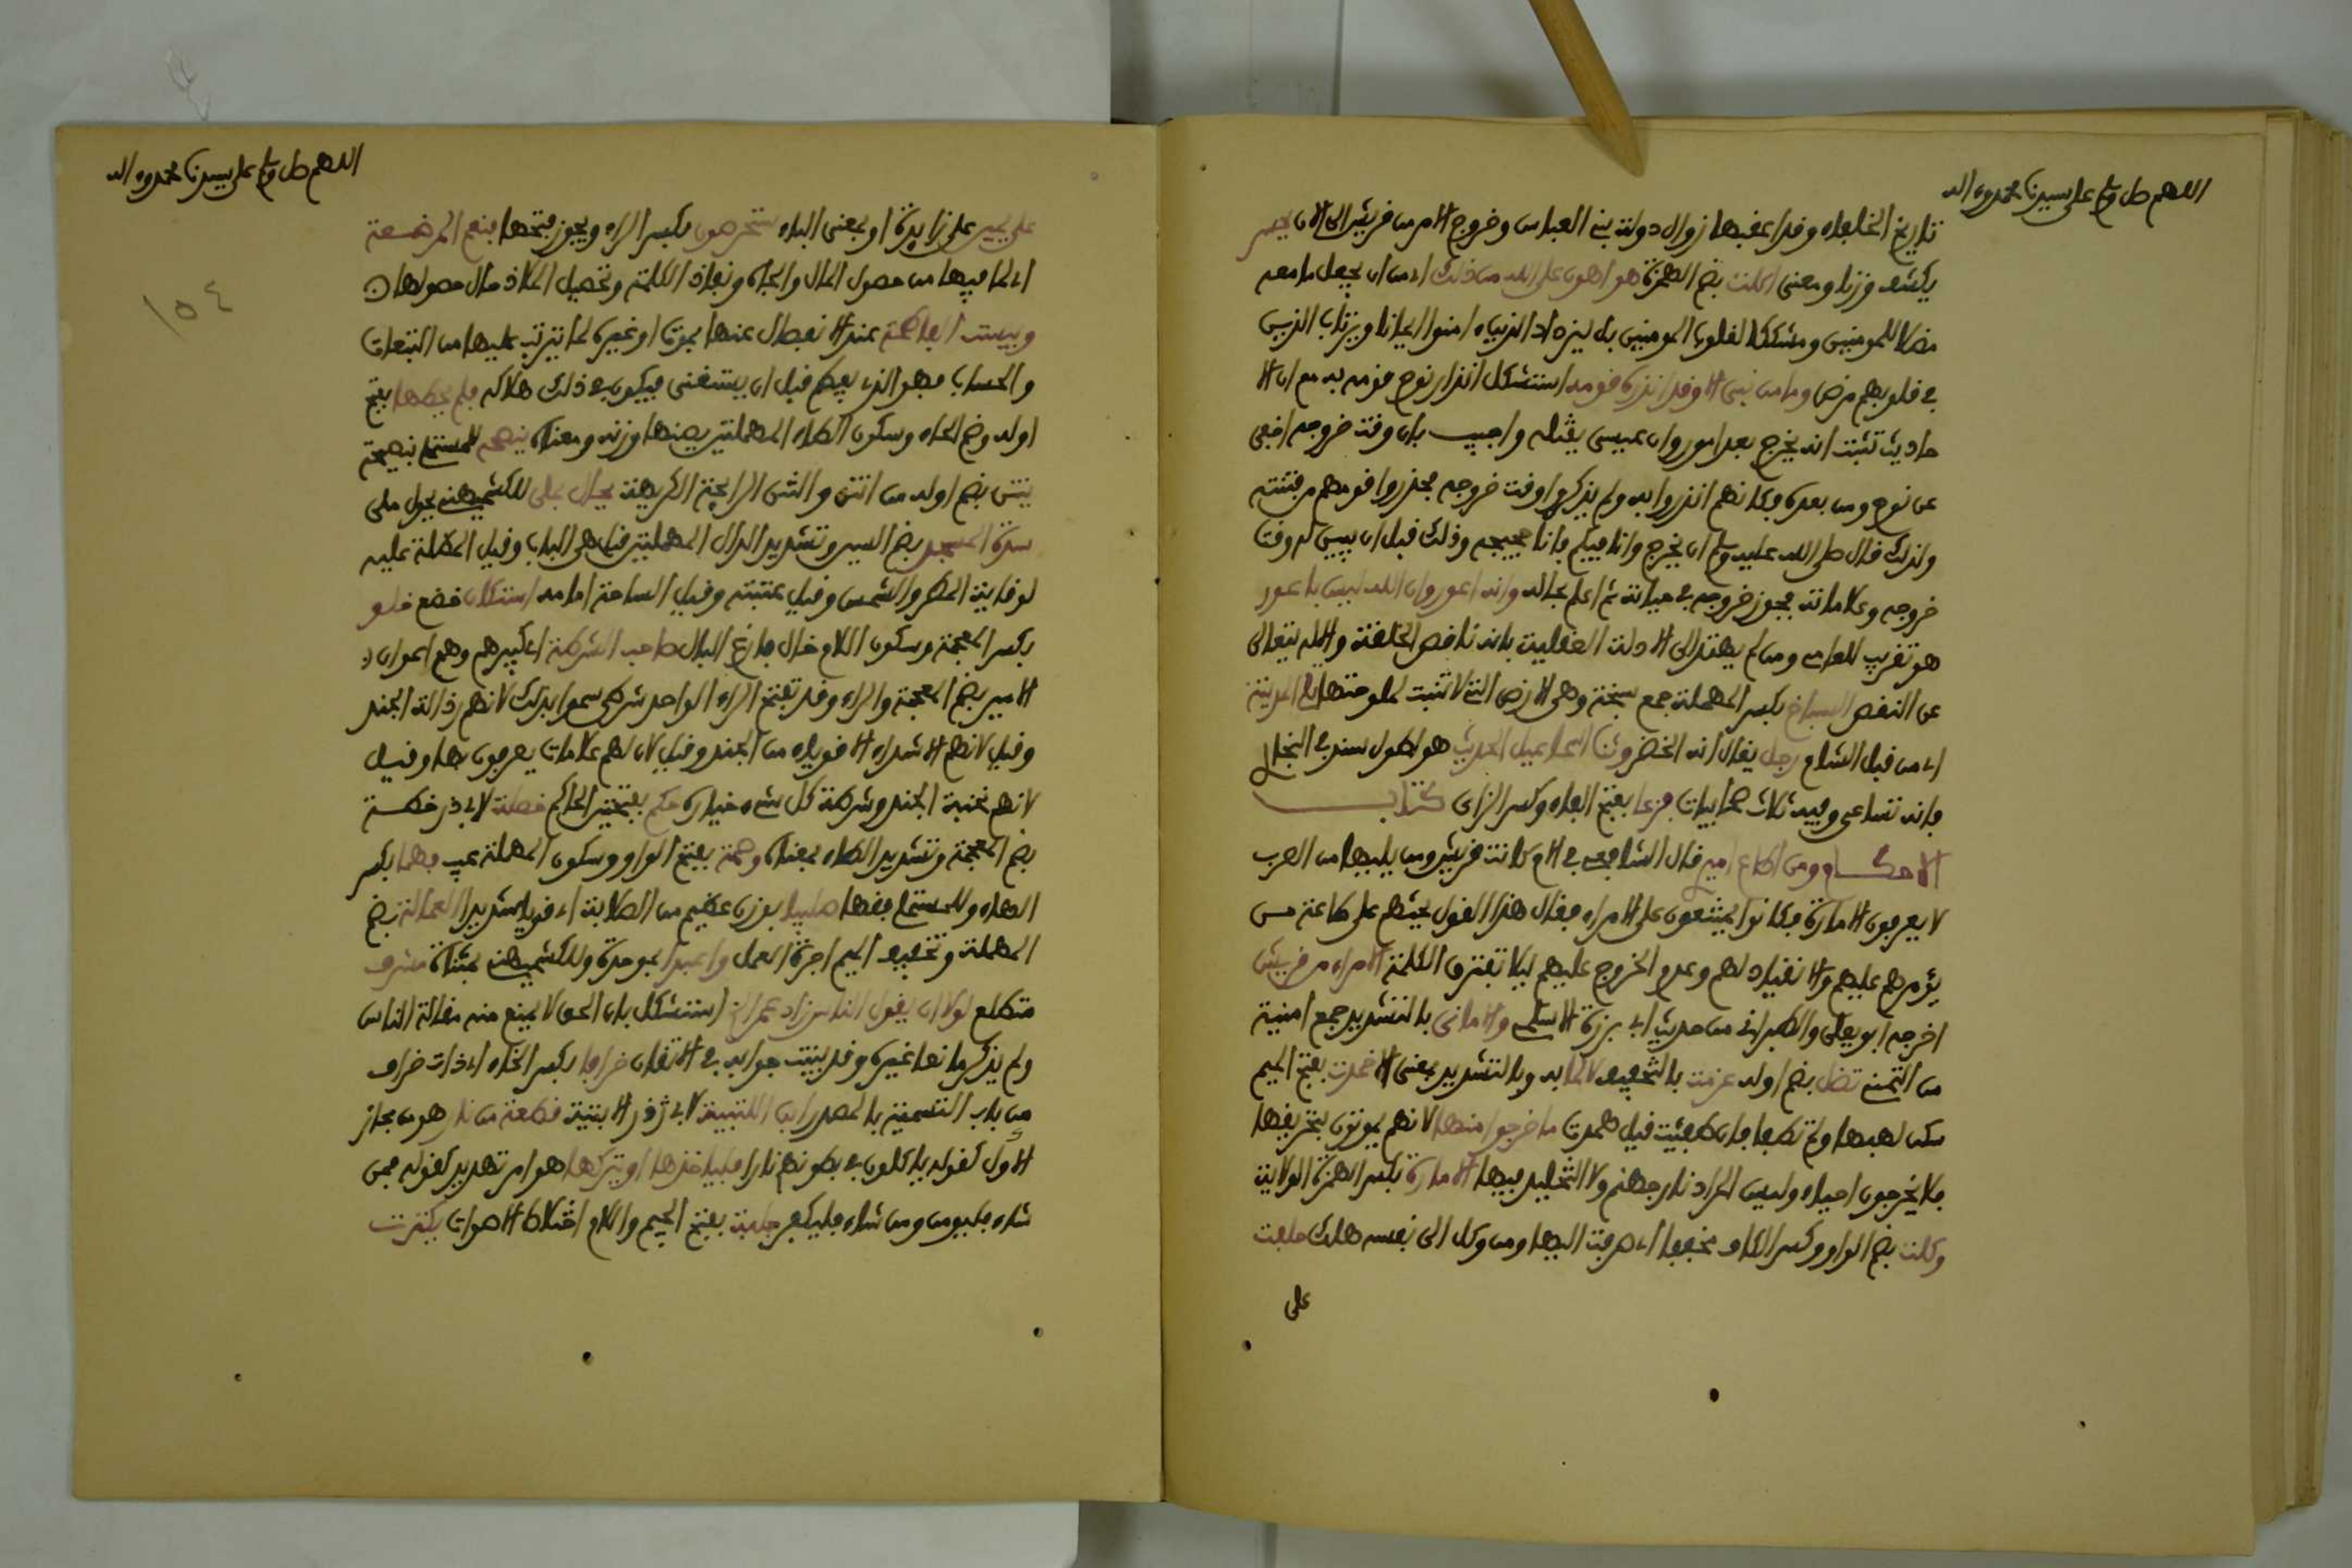 اللهم صل وسلم على سيدنا محمد وءاله
تاريخ الخلفاء وقد اعقبها زوال دولت بني العباس وخروج الامر من قريش الى الان يحصر
يكشف وزنا ومعنى اكلت بضم الهمزة هو اهون على الله من ذلك اي من ان يجعل ما معه
مضلا للمومنين ومشككا لقلوب المومنين بل ليزداد الذين ءامنوا ايمانا ويرتاب الذين
في قلوبهم مرض وما من نبي الا وقد انذره قومه استشكل انذار نوح قومه به مع ان الا
حاديث تثبت انه يخرج بعد امور وان عيسى يقتله واجيب بان وقت خروجه اخفي
عن نوح ومن بعده فكانهم انذروا به ولم يذكروا وقت خروجه فحذروا قومهم من فتنته
ولذلك قال صلى الله عليه وسلم ان يخرج وانا فيكم فانا حجيجه وذلك قبل ان يبين له وقت
خروجه وعلاماته فجوز خروجه في حياته ثم اعلم بحاله وانه اعور وان الله ليس باعور
هو تقريب للعامي ومن لم يهتد الى الادلة العقلية بانه ناقص الخلقة والاله يتعالى
عن النقص السباخ بكسر المهملة جمع سبخة وهي الارض التي لا تنبت لملوحتها يلي المدينة
اي من قبل الشام رجل يقال انه الخضر وثنا اسماعيل الحديث هو اطول سند في البخاري
فانه تساعي وفيه ثلاث صحابيات فزعا بفتح الفاء وكسر الزاي كتاب
الاحكام ومن اطاع اميري قال الشافعي في الام كانت قريش ومن يليها من العرب
لا يعرفون الامارة فكانوا يمتنعون على الامراء فقال هذا القول يحثهم على طاعة من
يؤمرهم عليهم والانقياد لهم وعدم الخروج عليهم ليلا تفترق الكلمة الامراء من قريش
اخرجه ابو يعلى والطبراني من حديث ابي برزة الاسلمي والاماني بالتشديد جمع امنية
من التمني تضل بضم اوله عزمت بالتخفيف وبالتشديد بمعنى الا خمدت بفتح الميم
سكن لهبها ولم تطفا فان طفئت قيل همدت ما خرجوا منها لانهم يموتون بتحريقها
فلا يخرجون احياء وليس المراد نار جهنم ولا التخليد فيها الامارة بكسر الهمزة الولاية
وكلت بضم الواو وكسر الكاف مخففا اي صرفت اليها ومن وكل الى نفسه هلك حلفت
على
اللهم صل وسلم على سيدنا محمد وءاله
١٥٤
على يمين على زايدة او بمعنى الباء ستحرصون بكسر الراء ويجوز فتحها فنعم المرضعة
اي لما فيها من حصول المال والجاه ونفاذ الكلمة وتحصيل الملاذ حال حصولها
وبيست الفاطمة عند الانفصال عنها بموت او غيره لما يترتب عليها من التبعات
والحساب فهو الذي يفطم قبل ان يستغني فيكون في ذلك هلاكه فلم يحطها بفتح
اوله وضم الحاء وسكون الطاء المهملتين يصنها وزنه ومعناه بنصحه للمستملي بنصيحة
ينتن بضم اوله من انتن والنتن الرايحة الكريهة يحال يحلى للكشميهني يحول ملى
سدة المسجد بضم السين وتشديد الدال المهملتين قيل هي الباب وقيل المظلة عليه
لوقاية المطر والشمس وقيل عتبته وقيل الساحة امامه استكان خضع خلو
بكسر المعجمة وسكون اللام خال فارغ البال صاحب الشرطة اي كبيرهم وهم اعوان
الامير بضم المعجمة والراء وقد تفتح الراء الواحد شرطي سموا بذلك لانهم رذالة الجند
وقيل لانهم الاشداء الاقوياء من الجند وقيل لان لهم علامات يعرفون بها وقيل
لانهم نخبة الجند وشرطة كل شيء خياره حكم بفتحتين الحاكم خطة لابي ذر خطة
بضم المعجمة وتشديد الطاء بمعناه وصمة بفتح الواو وسكون المهملة عيب فهما بكسر
الهاء وللمستملي فقها صليبا بوزن عظيم من الصلابة اي قويا شديدا العمالة بضم
المهملة وتخفيف الميم اجرة العمل واعبدا بموحدة وللكشميهني بمثناة مشرف
متطلع لولا ان يقول الناس زاد عمر الخ استشكل بان الحق لا يمنع منه مقالة الناس
ولم يذكر مانعا غيره وقد بينت جوابه في الاتقان خرافا بكسر الخاء اي ذات خراف
من باب التسمية بالمصدر ابن اللتبية لابي ذر الابتية قطعة من نار هو من مجاز
الاول كقوله ياكلون في بطونهم نارا فلياخذها او يتركها هو امر تهديد كقوله فمن
شاء فليومن ومن شاء فليكفر جلبة بفتح الجيم واللام اختلاط الاصوات يكترث